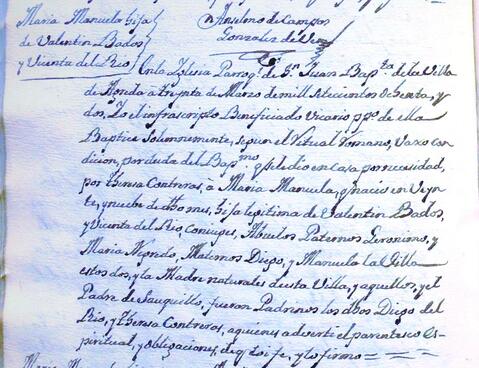 Maria Manuela hija
de Valentin Bados
y Vicenta del Rio
Anselmo de Campos
Gonzalez de Vera
En la Iglesia Parroql. de Sn. Juan Bapta. de la Villa
de a treynta de Marzo de mill setecientos ochenta, y
dos, Yo el infrascripto Beneficiado Vicario ppo. de ella
Baptice solemnemente, segun el Ritual Romano, vaxo con
dicion, por duda del Bapmo. q se le dio en Casa por necesidad,
por theresa Contreras, a Maria Manuela, q nacio en Veyn
te, y nuebe de dho mes, hija legitima de Valentin Bados,
y Vicenta del Rio, Coniuges, Abuelos Paternos Geronimo, y
Maria Maternos Diego, y Manuela la Villa
estos dos, y la Madre naturales de esta Villa, y aquellos, y el
Padre de Sauquillo, fueron Padrinos los dhos Diego del
Rio, y theresa Contreras, a quienes adverti el parentesco Es-
piritual, y obligaciones, de q doi fe, y lo firmo